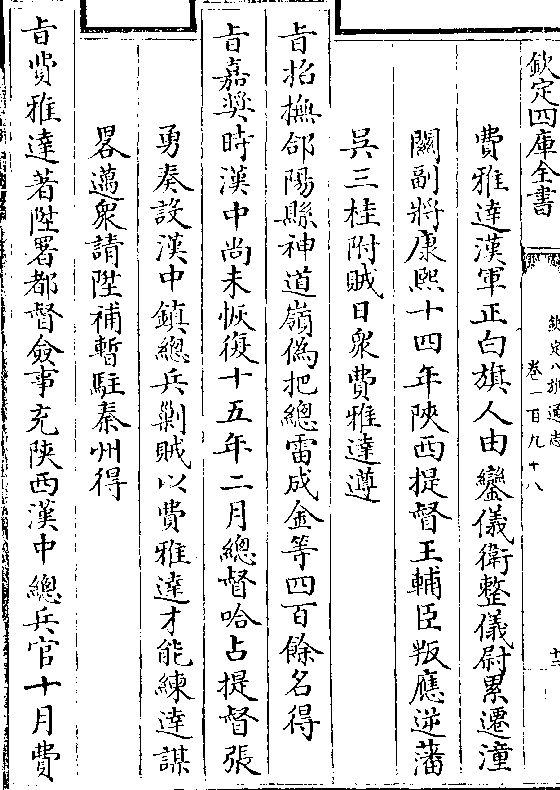 欽定四庫全書
欽定八旗通志
卷一百九十八
十三
費雅達漢軍正白旗人由鑾儀衛整儀尉累遷潼
關副將康熙十四年陝西提督王輔臣叛應逆藩
吳三桂附賊日衆費雅達遵
旨招撫郃陽縣神道嶺偽把總雷成金等四百餘名得
旨嘉奨時漢中尚未恢復十五年二月總督哈占提督張
勇奏設漢中鎮總兵剿賊以費雅達才能練達謀
畧邁衆請陞補暫駐秦州得
旨費雅達著陞署都督僉事充陝西漢中總兵官十月費